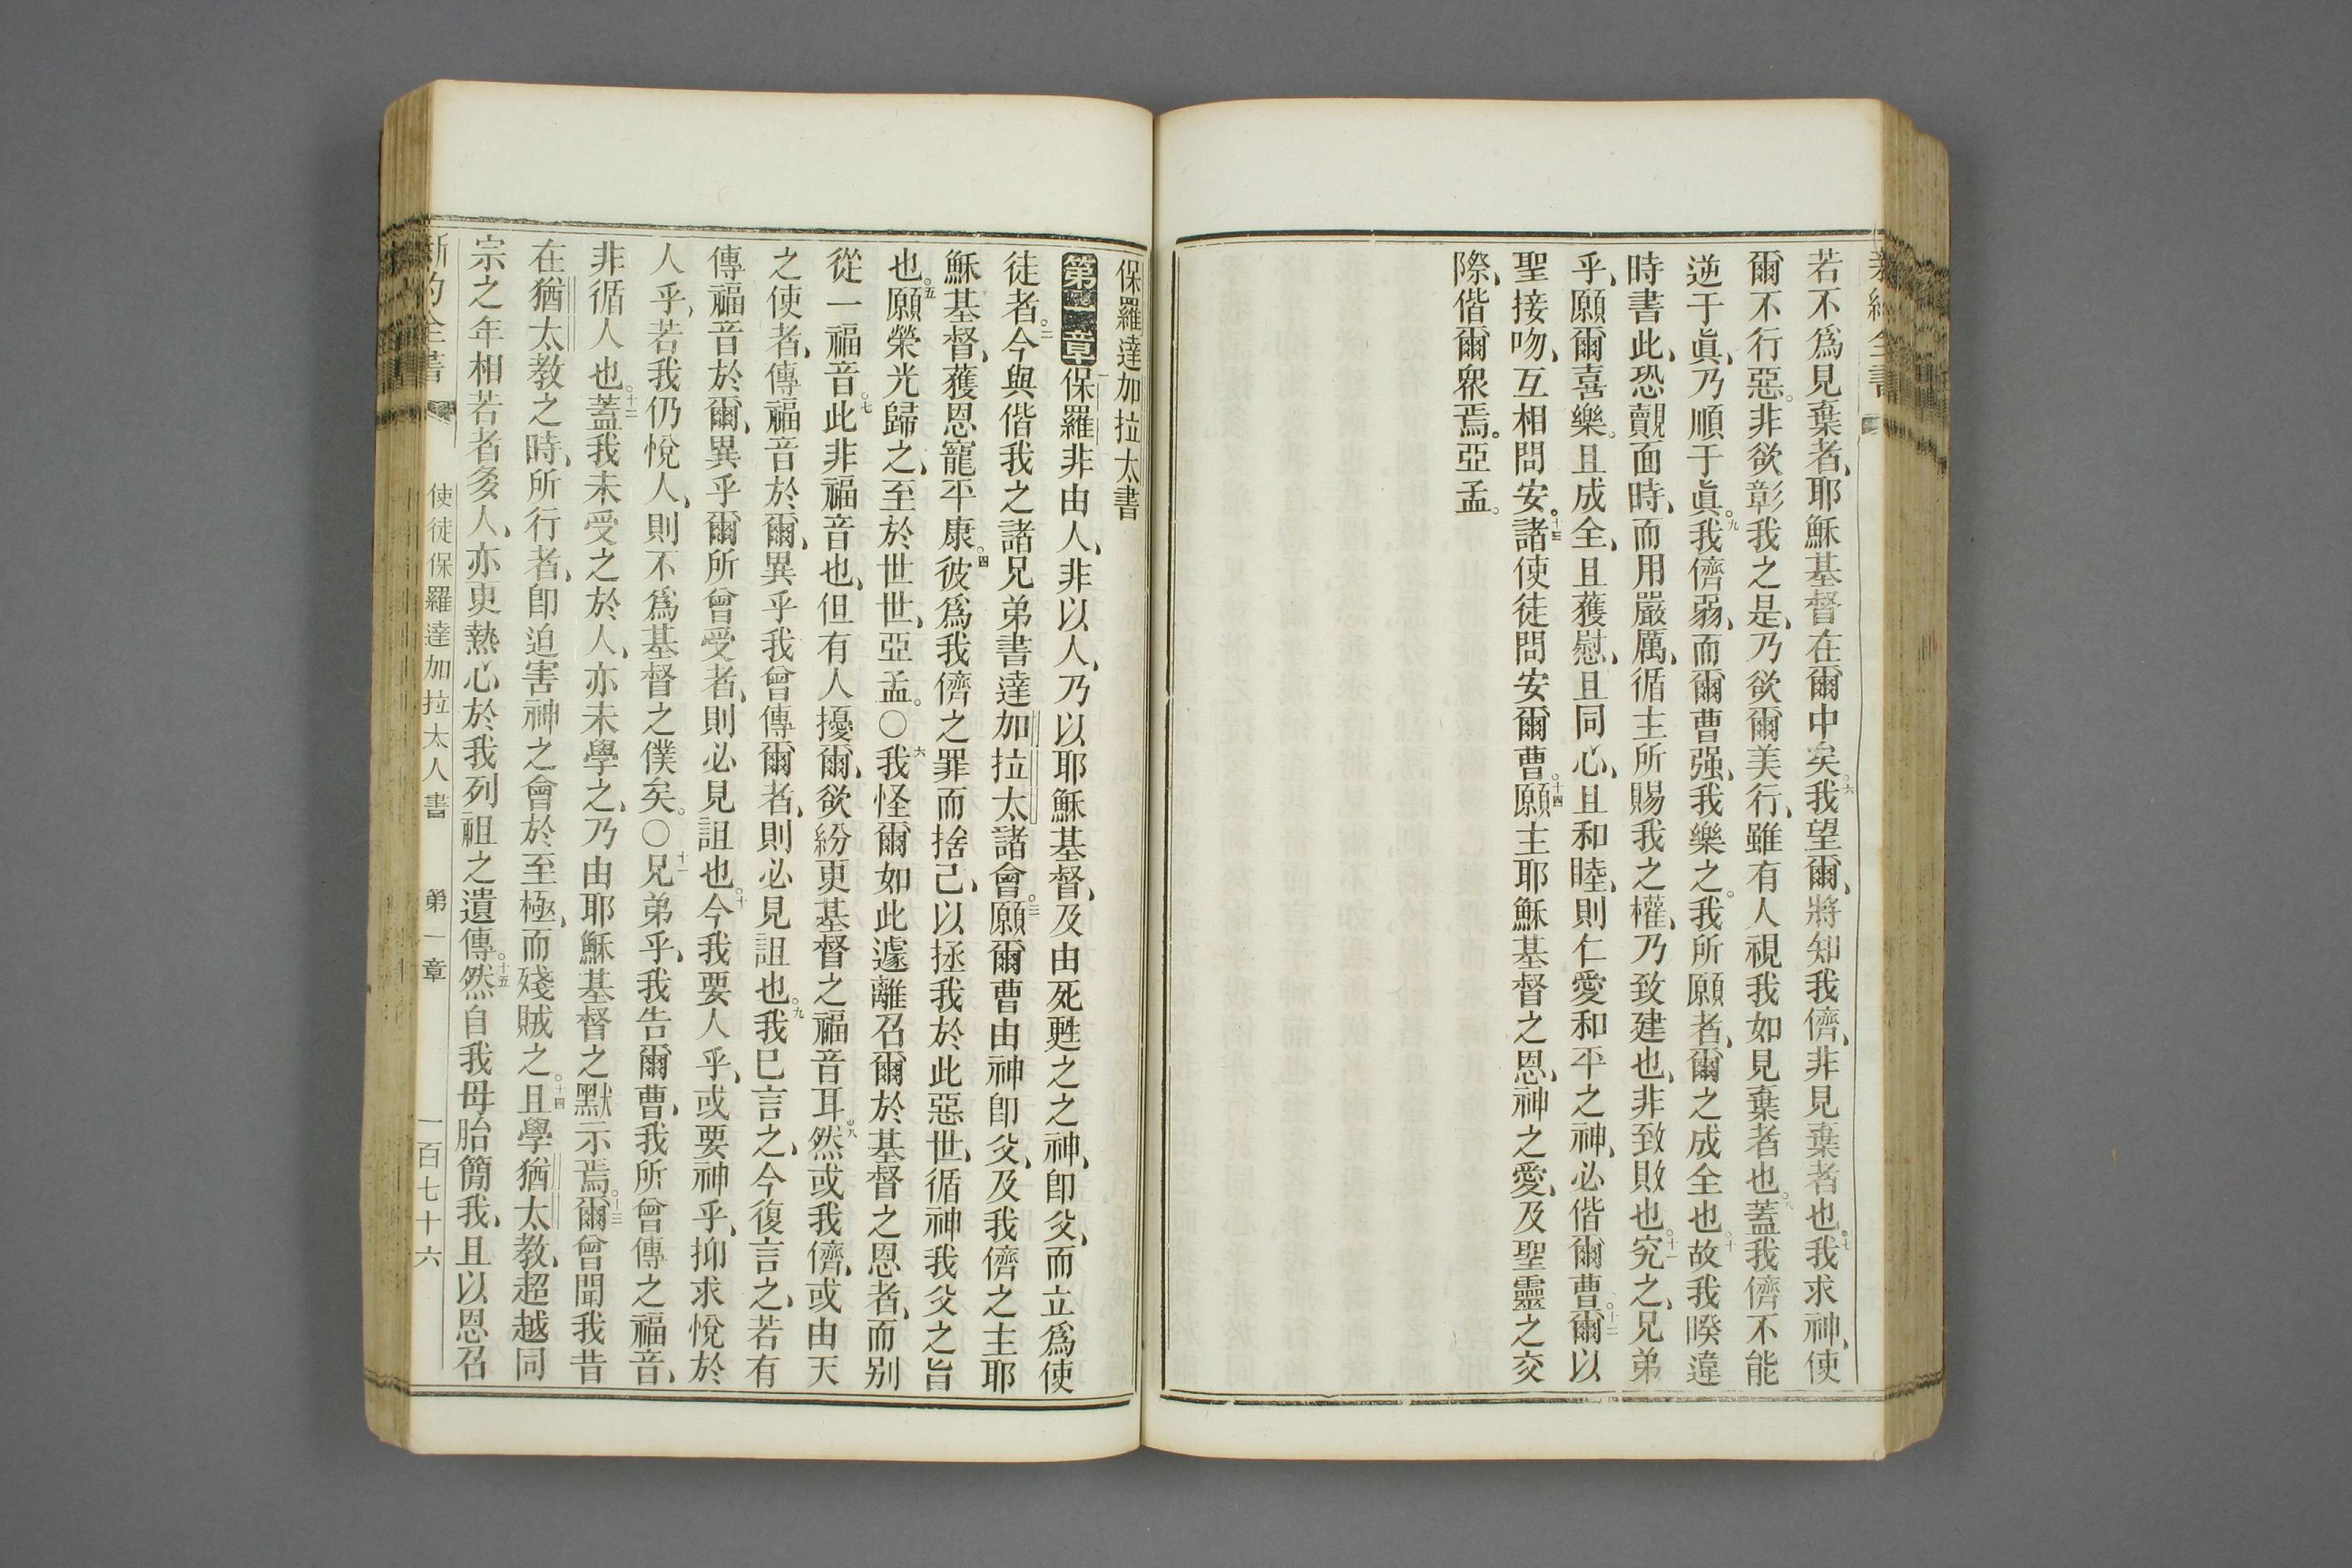 若不爲見棄者、耶穌基督在爾中矣。六我望爾、將知我儕、非見棄者也。七我求神、使
爾不行惡。非欲彰我之是、乃欲爾美行、雖有人視我如見棄者也。八蓋我儕不能
逆于眞、乃順于眞。九我儕弱、而爾曹强、我樂之。我所願者、爾之成全也。十故我暌違
時書此、恐覿面時、而用嚴厲、循主所賜我之權、乃致建也、非致敗也。十一究之、兄弟
乎、願爾喜樂。且成全、且獲慰、且同心、且和睦、則仁愛和平之神、必偕爾曹。十二爾以
聖接吻、互相問安。十三諸使徒問安爾曹。十四願主耶穌基督之恩、神之愛、及聖靈之交
際、偕爾衆焉。亞孟。
保羅達加拉太書
第一章一保羅非由人、非以人、乃以耶穌基督、及由死甦之之神、卽父、而立爲使
徒者。二今與偕我之諸兄弟書達加拉太諸會。三願爾曹由神卽父、及我儕之主耶
穌基督、獲恩寵平康。四彼爲我儕之罪而捨己、以拯我於此惡世、循神我父之旨
也。五願榮光歸之、至於世世、亞孟。〇六我怪爾如此遽離召爾於基督之恩者、而別
從一福音。七此非福音也、但有人擾爾、欲紛更基督之福音耳。八然或我儕、或由天
之使者、傳福音於爾、異乎我曾傳爾者、則必見詛也。九我已言之、今復言之、若有
傳福音於爾、異乎爾所曾受者、則必見詛也。十今我要人乎、或要神乎、抑求悅於
人乎、若我仍悅人、則不爲基督之僕矣。〇十一兄弟乎、我告爾曹、我所曾傳之福音、
非循人也。十二蓋我未受之於人、亦未學之、乃由耶穌基督之默示焉。十三爾曾聞我昔
在猶太教之時、所行者、卽迫害神之會於至極、而殘賊之。十四且學猶太教、超越同
宗之年相若者多人、亦更熱心於我列祖之遺傳。十五然自我母胎簡我、且以恩召
新約全書 使徒保羅達加拉太人書 第一章 一百七十六